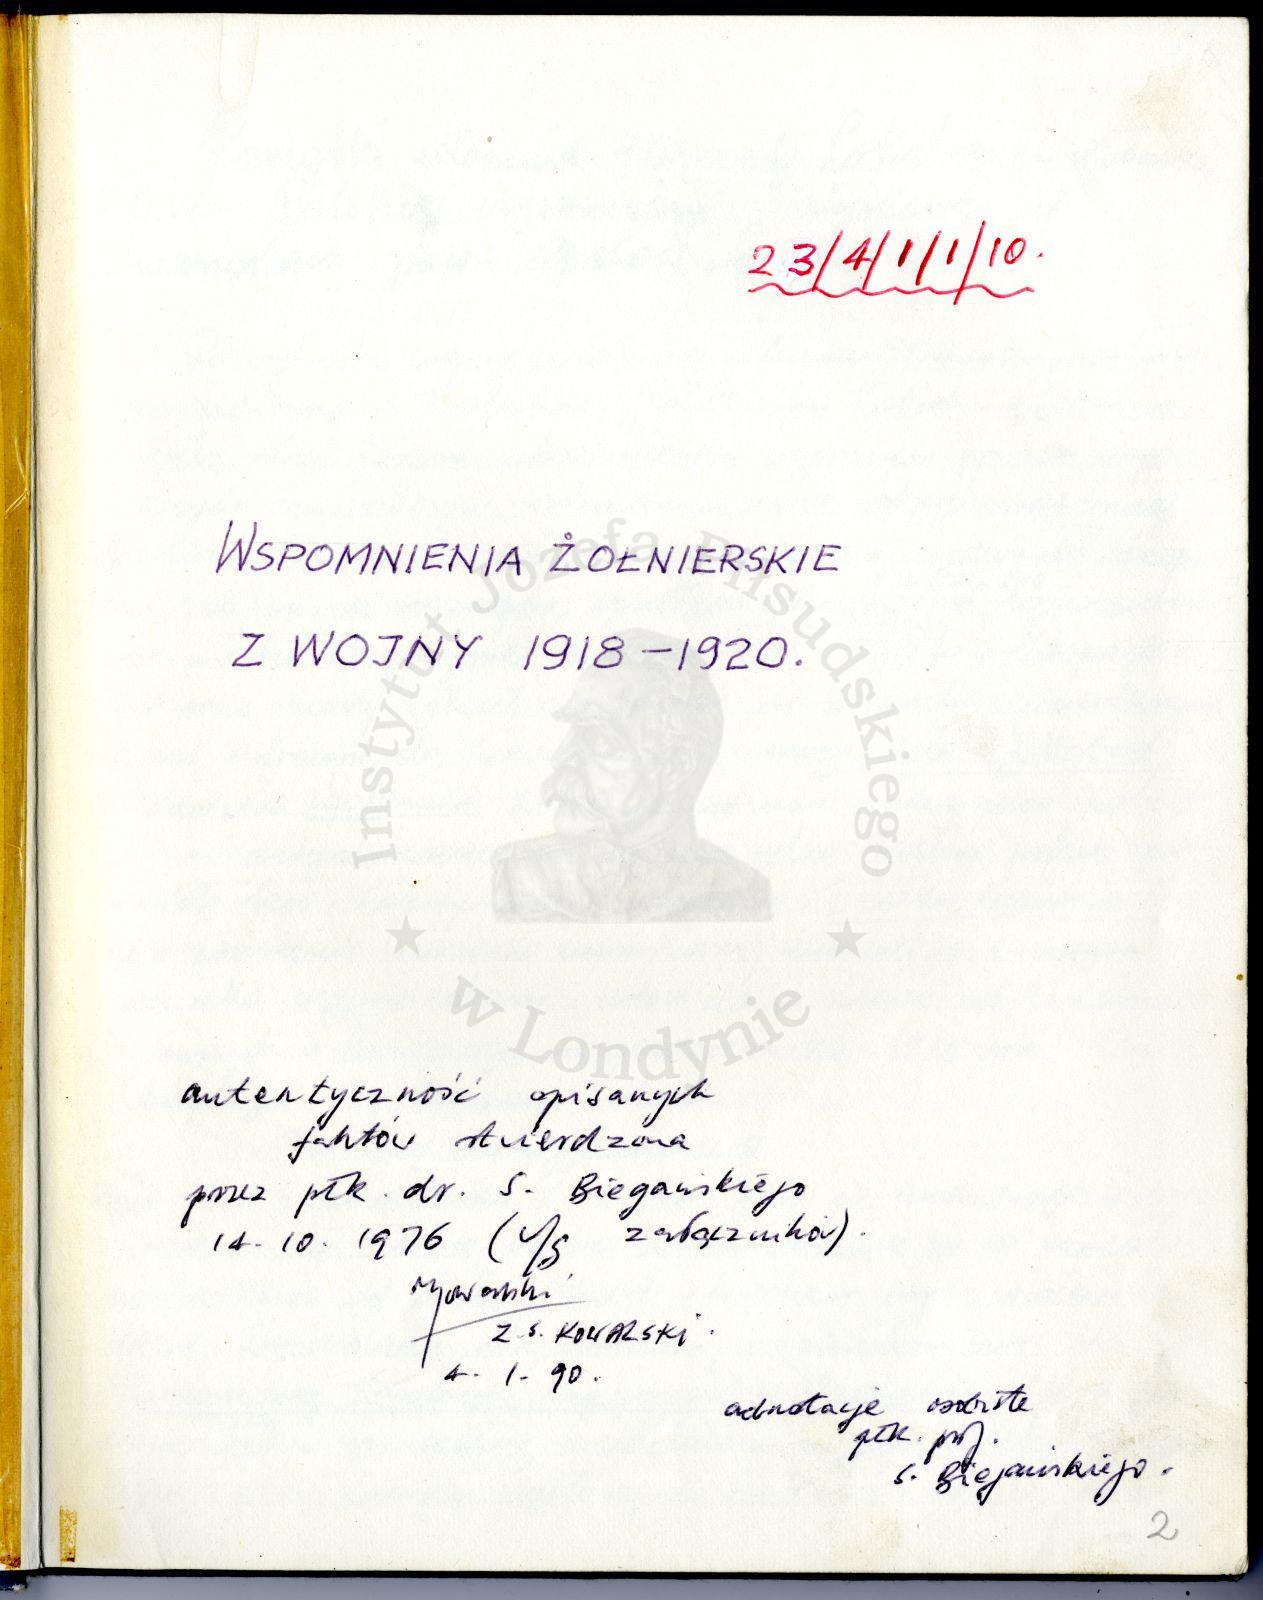 23/4/1/1/10.
WSPOMNIENIA ŻOŁNIERSKIE
Z WOJNY 1918-1920.
Instytut Józefa Piłsudskiego
w Londynie
autentyczność opisanych
faktów stwierdzona
przez płk. dr. S. Biegańskiego
14.10.1976 (w/g załączników).
Z.S. KOWALSKI.
4.1.90.
adnotacje osobiste
płk. prof.
S. Biegańskiego.
2